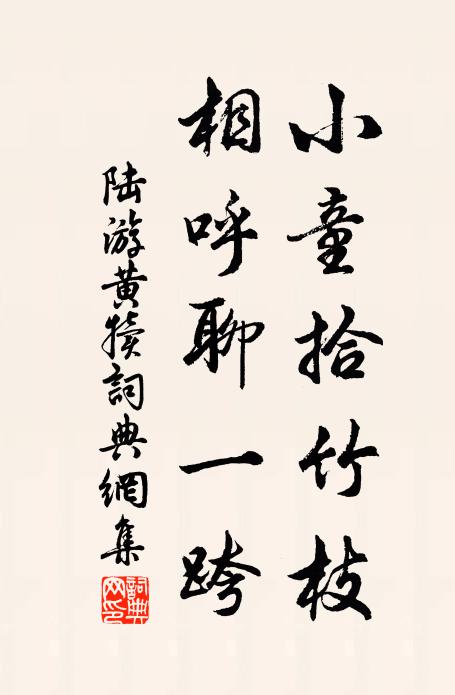 小童拾竹枝
相呼聊一跨
陆游黄犊詞典網集
詞典网印